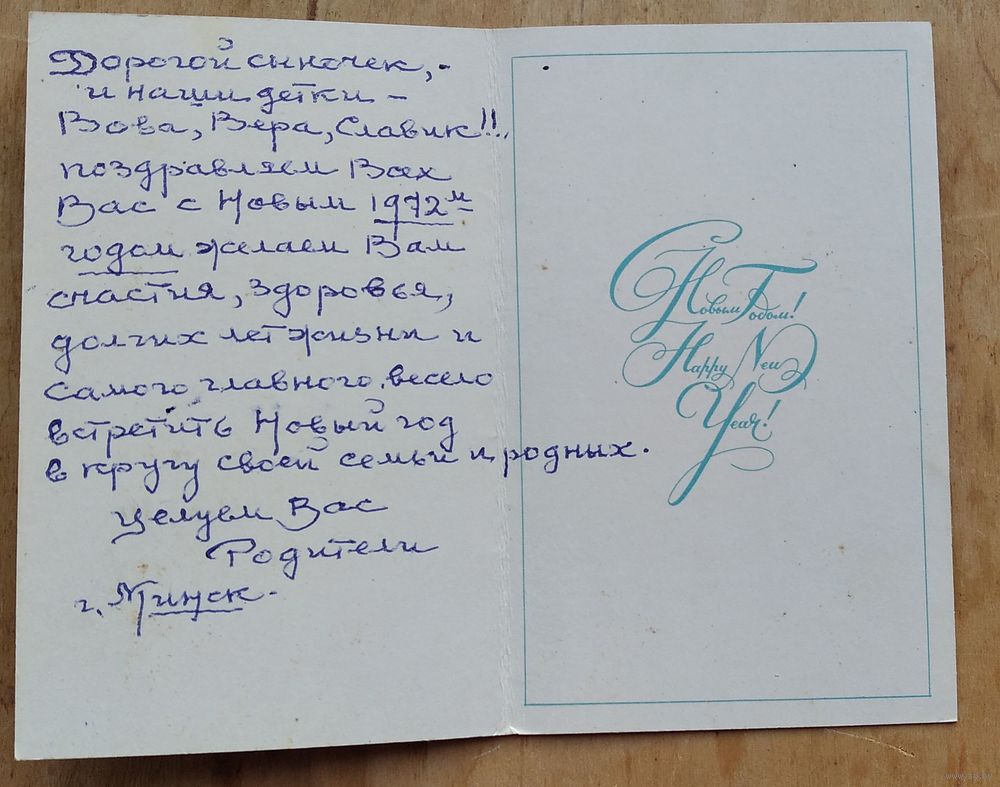 Дорогой сыночек, -
и наши детки -
Вова, Вера, Славик!!.
поздравляем Всех
Вас с Новым 1972м
годом желаем Вам
счастия, здоровья,
долгих лет жизни и
самого главного, весело
встретить Новый год
в кругу своей семьи и родных.
целуем Вас
Родители
г. Минск.
С Новым Годом!
Happy New
Year!